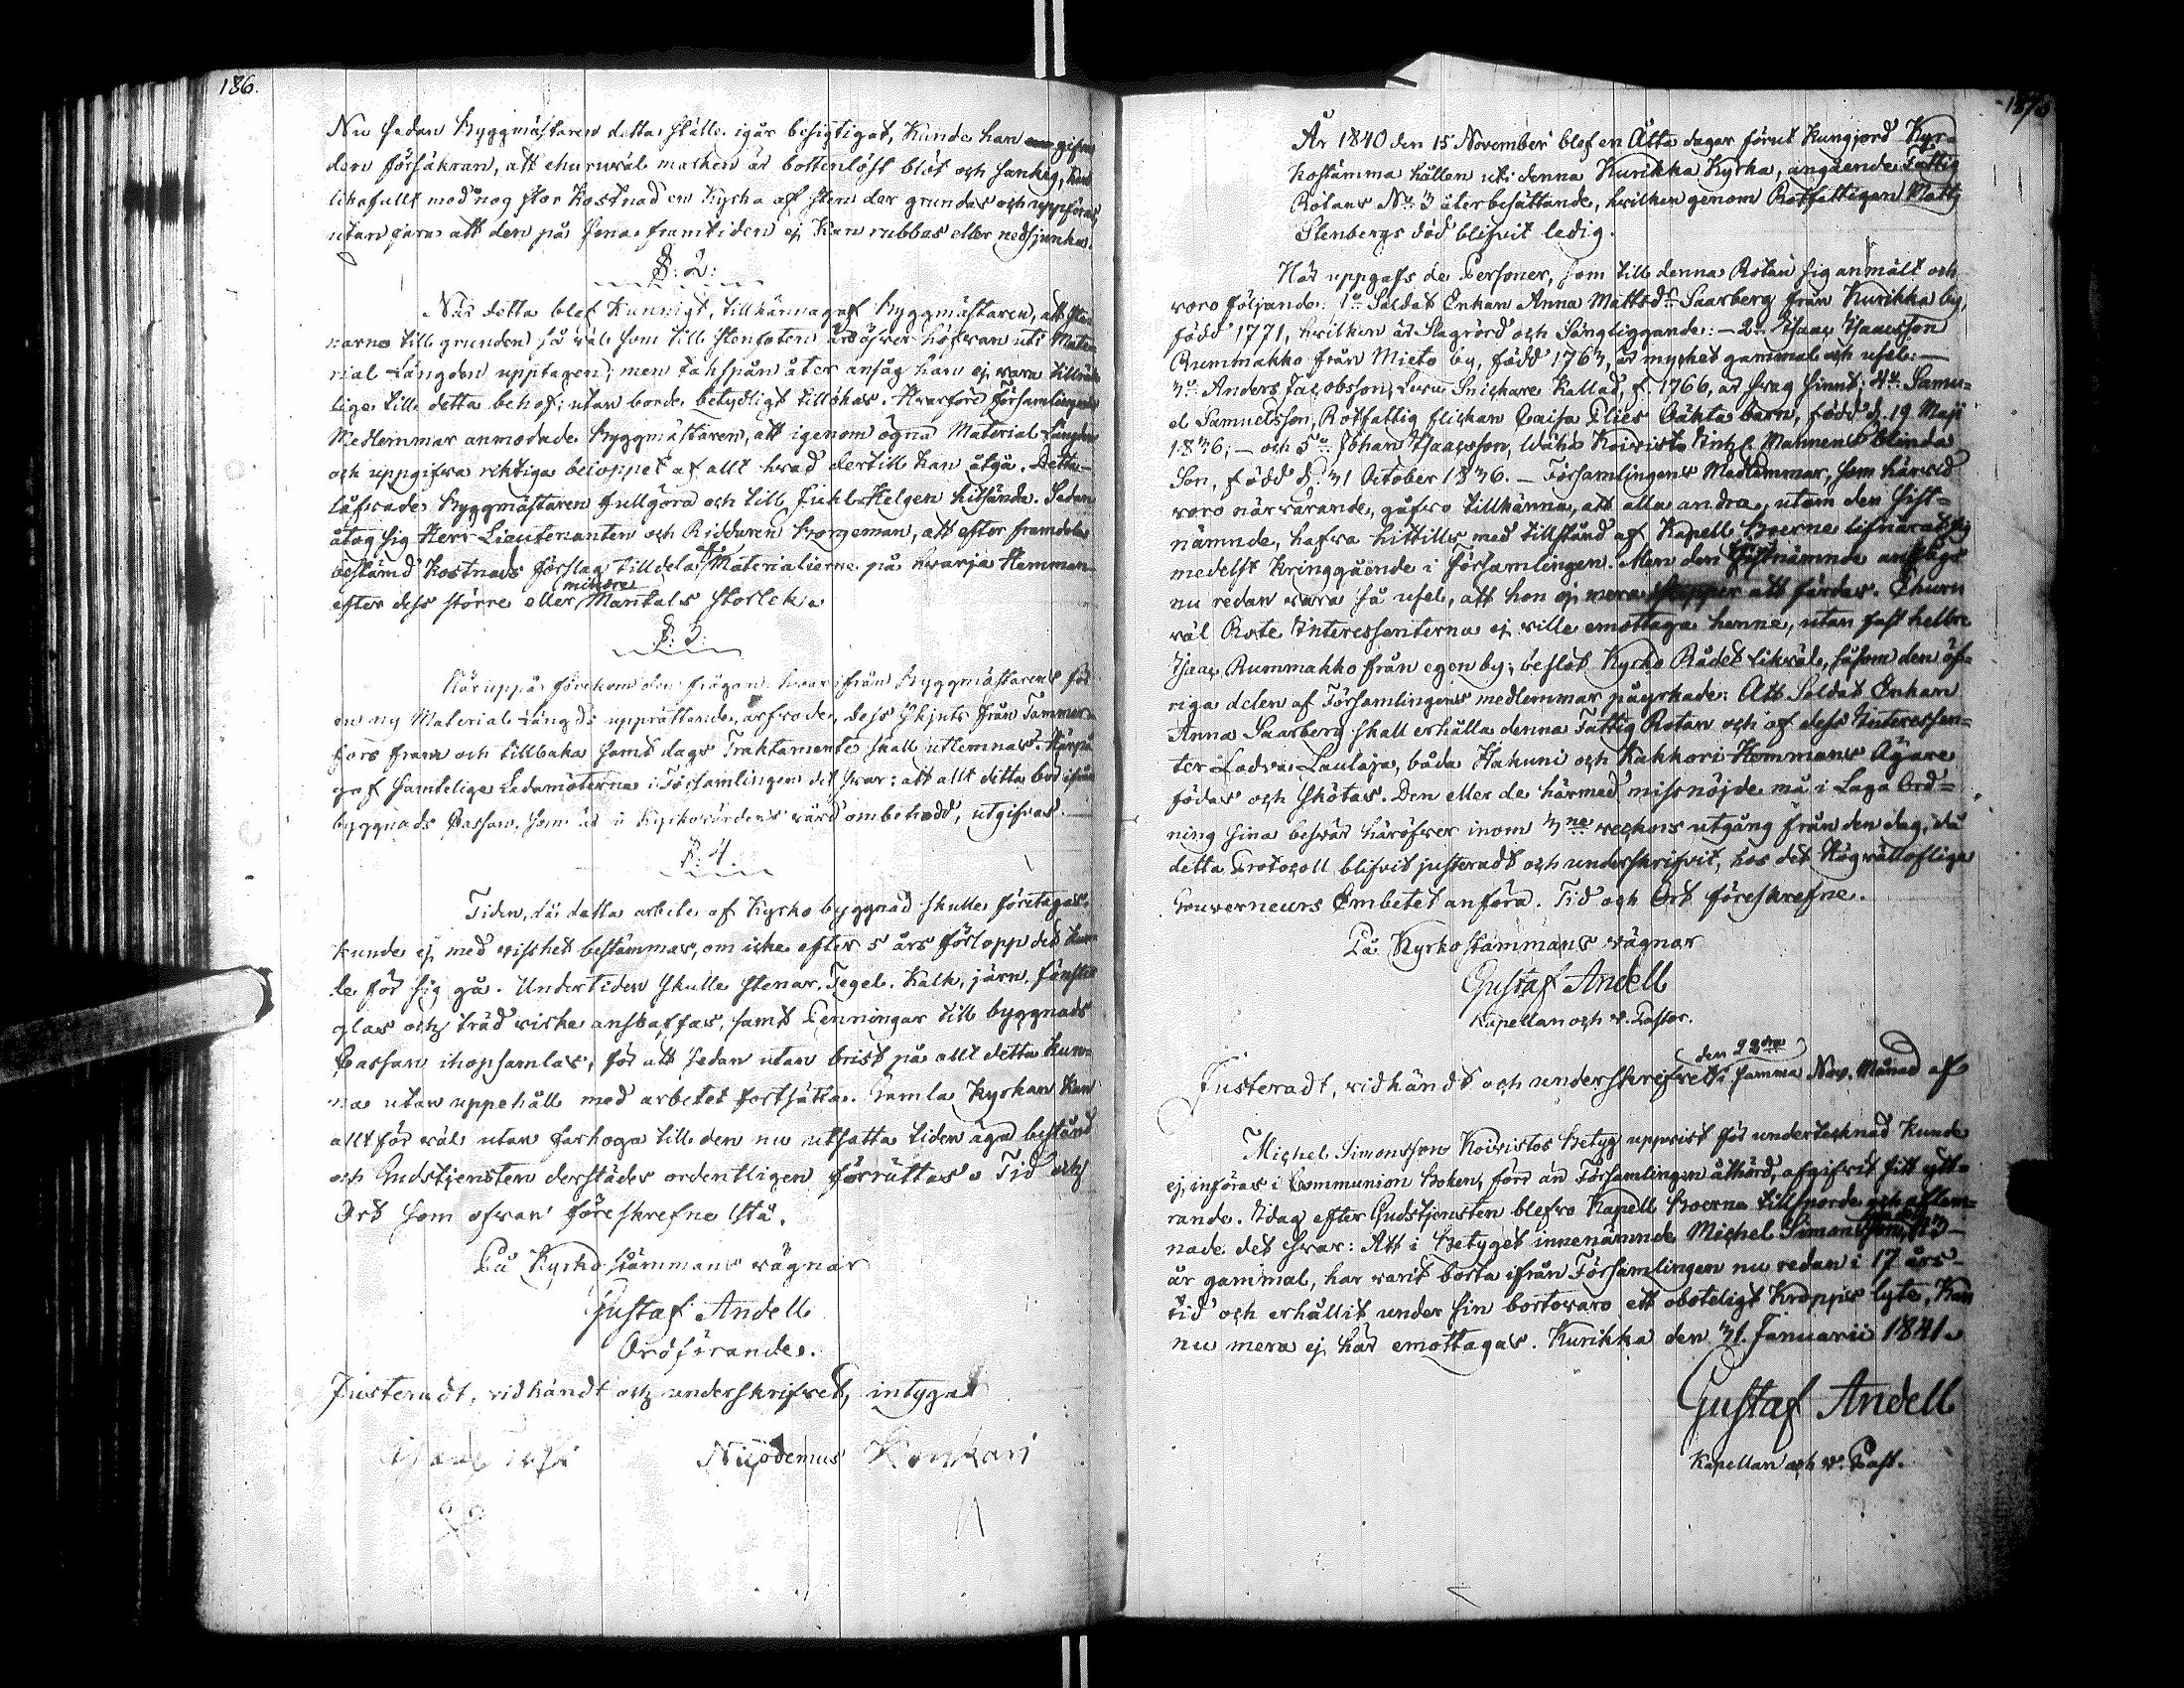 186.
Nu sedan Byggmästaren detta ställe igår besigtigat, kunde han gifva
den försäkran, att ehuruväl marken är bottenlöst blöt och sankig, kan
likafullt med nog stor kostnad en Kyrka af sten der grundas och uppföras,
utan fara att den på sena framtiden ej kan rubbas eller nedsjunka.
§: 2:
När detta blef kunnigt, tillkännagaf Byggmästaren, att ste-
narne till grunden så väl som till stenfoten är öfver höfvan uti Mate-
rial Längden upptagen; men takspån åter ansåg han ej vara tillräck-
lige till detta behof; utan borde betydligt tillökas. Hvarföre Församlingens
Medlemmar anmodade Byggmästaren, att igenom ögna Material Längden
och uppgifva riktiga beloppet af allt hvad dertill kan åtgå. Detta
låfvade Byggmästaren fullgöra och till Jule Helgen hitsända. Sedan
åtog sig Herr Lieutenanten och Riddaren Borgeman, att efter framdeles
bestämd Kostnads förslag tilldela Materialierne på hvarje Hemman
efter dess större eller mindre Mantals storlek.
§: 3:
Häruppå förekom den frågan, hvarifrån Byggmästarens för
en ny Material Längds upprättande, arfvode, dess skjuts från Tammer-
fors fram och tillbaka samt dags Traktamente skall utlemnas. Härpå
gaf samtelige Ledamöterna i Församlingen det svar: att allt detta bör ifrån
byggnads Cassan, som är i Kyrkovärdens vård ombetrodd, utgifvas.
§: 4.
Tiden, då detta arbete af Kyrko byggnad skulle företagas,
kunde ej med visshet bestämmas, om icke efter 5 års förlopp det kun-
de för sig gå. Undertiden skulle stenar, Tegel, Kalk, järn, fönster
glas och träd virke anskaffas, samt Penningar till byggnads
Cassan ihopsamlas, för att sedan utan brist på allt detta kun-
na utan uppehåll med arbetet fortsätta. Gamla Kyrkan kan
allt för väl utan farhoga till den nu utsatta tiden äga bestånd
och Gudstjensten derstädes ordentligen förrättas. Tid och
Ort som ofvan föreskrefne stå.
På Kyrko stämmans vägnar
Gustaf Andell
Ordförande.
Justeradt, vidhändt och underskrifvet, intygar
Nicodemus Konkari
År 1840 den 15 November blef en Åtta dagar förut kungjord Kyr-
kostämma hållen uti denna Kurikka Kyrka, angående Fattig
Rotans No 3 återbesättande, hvilken genom Rotfattigen Matts
Stenbergs död blifvit ledig.
Här uppgafs de Personer, som till denna Rotan sig anmält och
voro följande: 1o Soldat Enkan Anna Mattsdr Saarberg från Kurikka by,
född 1771, hvilken är Slagrörd och Sängliggande: — 2o Isaac Isaacsson
Rummakko från Mieto by, född 1763, är mycket gammal och usel: —
3o Anders Jacobsson, Snickare kallad, f. 1766, är svag sinnt; 4o Samu-
el Samuelsson, Rotfattig flickan Caisa Plies oäkta barn, född d. 19 Maji
1836; — och 5o Johan Isaacsson, Wähä Koivisto Inhs Mannens blinda
Son, född d. 31 October 1836. — Församlingens Medlemmar, som härvid
voro närvarande, gåfvo tillkänna, att alla andra, utom den sist-
nämnde, hafva hittills med tillstånd af Kapell Boerne lifnärat sig
medelst kringgående i församlingen. Men den förstnämnde ansågs
nu redan vara så usel, att hon ej mera att färdas. Ehuru
väl Rote Interessenterna ej ville emottaga henne, utan fast hellre
Isaac Rummakko från egen by; beslöt Kyrko Rådet likväl, såsom den öf-
riga delen af Församlingens medlemmar påyrkade: Att Soldat Enkan
Anna Saarberg skall erhålla denna Fattig Rotan och af dess Interessen-
ter Ladva Laulaja, båda Hakuni och Kakkori Hemmans Ägare
födas och skötas. Den eller de härmed missnöjde må i Laga Ord-
ning sina besvär häröfver inom 3ne veckors utgång från den dag, då
detta Protocoll blifvit justeradt och underskrifvit, hos det Högvälloflige
Gouverneurs Embetet anföra. Tid och Ort föreskrefne.
På Kyrko stämmans vägnar
Gustaf Andell
Kapellan och v. Pastor.
Justeradt, vidhändt och underskrifvet den 22dra i samma Nov. Månad af
Michel Simonsson Koivistos Betyg uppvist för undertecknad kunde
ej införas i Communion Boken, förr än Församlingen åthörd, afgifvit sitt ytt-
rande. Idag efter Gudstjensten blefvo Kapell Boerna tillsporde och aflem-
nade det svar: Att i Betyget innenämnde Michel Simonsson,
år gammal, har varit borta ifrån Församlingen nu redan i 17 års
tid och erhållit under sin bortovaro ett oboteligt Kropps lyte, kan
nu mera ej här emottagas. Kurikka den 31. Januarii 1841.
Gustaf Andell
Kapellan och v. Past.